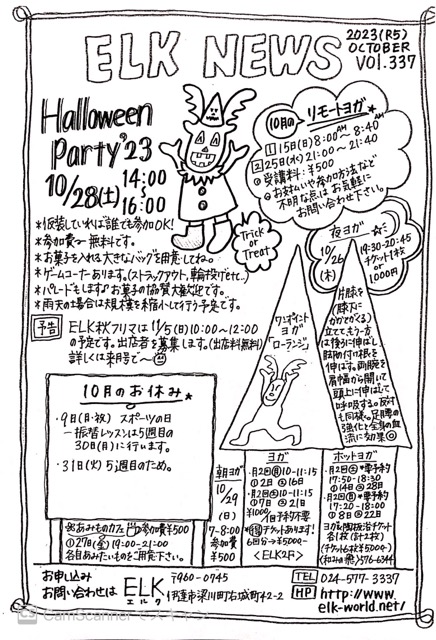 ELK NEWS
2023(R5)
OCTOBER
VOL.337
Halloween
Party'23
10/28(土) 14:00
~
16:00
*仮装していれば誰でも参加OK!
*参加費~無料です。
*お菓子を入れる大きなバッグを用意してね。
*ゲームコーナーあります。(ストラックアウト,輪投げetc..)
*パレードもします♪お菓子の協賛大歓迎です。
*雨天の場合は規模を縮小して行う予定です。
Trick
or
Treat
10月の リモートヨガ
①15日(日)8:00AM~8:40AM
②25日(水)21:00~21:40
◎受講料:¥500
◎お支払いや参加方法など
不明な点はお気軽に
お問い合わせ下さい。
夜ヨガ
10/26
(木)
19:30-20:45
チケット1枚
or
1000円
予告 ELK秋フリマは11/5(日)10:00~12:00
の予定です。出店者を募集します。(出店料無料)
詳しくは来月号で~
ワンポイント
ヨガ
"ローランジ"
片膝を
立て,もう一方
は後ろに伸ばし
脚の付け根を
伸ばす。両腕を
肩幅から開いて
頭上に伸ばして
呼吸する。反対
も同様。足腰の
強化と全身の血
流に効果◎
10月のお休み
・9日(月・祝) スポーツの日
→振替レッスンは5週目の
30日(月)に行います。
・31日(火) 5週目のため。
※あみものカフェ 参加費¥500
①27日(金)19:00-21:00
各自あみたいものをご用意下さい。
朝ヨガ
10/29
(日)
7-8:00
参加費
¥500
ヨガ
・月2回(月)10-11:15
①2日 ②16日
・月2回(水)10-11:15
¥1000 予約不要
チケットあります!
6回分→¥5000-
<ELK2F>
ホットヨガ
・月2回 *要予約
17:50-18:30
①14日 ②28日
・月2回 *要予約
17:20-18:00
①8日 ②22日
(チケット6枚¥5000-)
576-6344
お申し込み
お問い合わせは
ELK
エルク
〒960-0745
伊達市梁川町右城町42-2
TEL 024-577-3337
HP http://www.
elk-world.net/
CamScanner